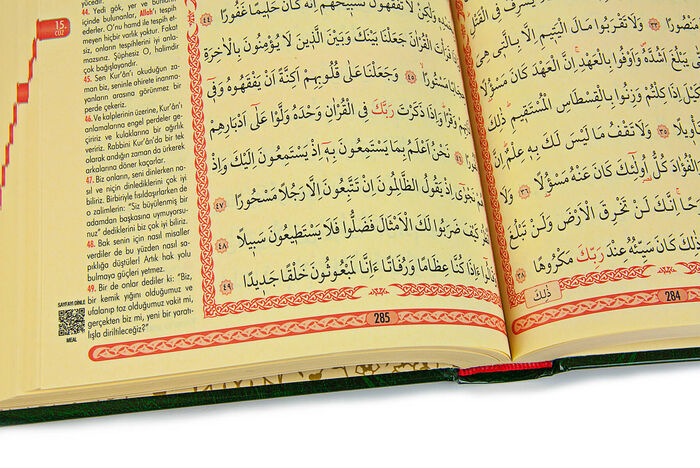 15.
CÜZ
yücedir.
44. Yedi gök, yer ve bunların
içinde bulunanlar, Allah'ı tespih
ederler. O'nu hamd ile tespih et-
meyen hiçbir varlık yoktur. Fakat
siz, onların tespihlerini iyi anla-
mazsınız. Şüphesiz O, halimdir
çok bağışlayandır.
45. Sen Kur'ân'ı okuduğun za-
man biz, seninle ahirete inanma-
yanların arasına görünmez bir
perde çekeriz.
46. Ve kalplerinin üzerine, Kur'ân'ı
anlamalarına engel perdeler ge-
çiririz ve kulaklarına bir ağırlık
veririz. Rabbini Kur'ân'da bir tek
olarak andığın zaman da ürkerek
arkalarına döner kaçarlar.
47. Biz onların, seni dinlerken na-
sıl ve niçin dinlediklerini çok iyi
biliriz. Birbiriyle fısıldaşırlarken de
o zalimlerin: "Siz büyülenmiş bir
adamdan başkasına uymuyorsu-
nuz" dediklerini biz çok iyi biliriz.
48. Bak senin için nasıl misaller
verdiler de bu yüzden nasıl sa-
pıklığa düştüler! Artık hak yolu
bulmaya güçleri yetmez.
49. Bir de onlar dediler ki: "Biz,
bir kemik yığını olduğumuz ve
ufalanıp toz olduğumuz vakit mi,
gerçekten biz mi, yeni bir yaratı-
lışla diriltileceğiz?"
SAYFAYI DİNLE
MEAL
وَلٰكِنْ لَا تَفْقَهُونَ تَسْبِيحَهُمْ اِنَّهُ كَانَ حَلِيمًا غَفُورًا ٤٤
قَرَأْتَ الْقُرْاٰنَ جَعَلْنَا بَيْنَكَ وَبَيْنَ الَّذِينَ لَا يُؤْمِنُونَ بِالْاٰخِرَةِ
مَسْتُورًا ٤٥ وَجَعَلْنَا عَلٰى قُلُوبِهِمْ اَكِنَّةً اَنْ يَفْقَهُوهُ وَفٖٓى
وَقْرًا وَاِذَا ذَكَرْتَ رَبَّكَ فِى الْقُرْاٰنِ وَحْدَهُ وَلَّوْا عَلٰٓى اَدْبَارِهِمْ
٤٦ نَحْنُ اَعْلَمُ بِمَا يَسْتَمِعُونَ بِهٖٓ اِذْ يَسْتَمِعُونَ اِلَيْكَ وَاِذْ
نَجْوٰٓى اِذْ يَقُولُ الظَّالِمُونَ اِنْ تَتَّبِعُونَ اِلَّا رَجُلًا مَسْحُورًا ٤٧
كَيْفَ ضَرَبُوا لَكَ الْاَمْثَالَ فَضَلُّوا فَلَا يَسْتَطِيعُونَ سَبِيلًا ٤٨
ءَاِذَا كُنَّا عِظَامًا وَرُفَاتًا ءَاِنَّا لَمَبْعُوثُونَ خَلْقًا جَدِيدًا ٤٩
285
يُسْرِفْ فِى الْقَتْلِ
مَنْصُورًا ٣٣ وَلَا تَقْرَبُوا مَالَ الْيَتِيمِ اِلَّا بِالَّتٖى هِىَ
يَبْلُغَ اَشُدَّهُ وَاَوْفُوا بِالْعَهْدِ اِنَّ الْعَهْدَ كَانَ مَسْؤُلًا
الْكَيْلَ اِذَا كِلْتُمْ وَزِنُوا بِالْقِسْطَاسِ الْمُسْتَقِيمِ ذٰلِكَ
تَأْوِيلًا ٣٥ وَلَا تَقْفُ مَا لَيْسَ لَكَ بِهٖ عِلْمٌ اِنَّ
وَالْفُؤٰادَ كُلُّ اُو۬لٰٓئِكَ كَانَ عَنْهُ مَسْؤُلًا ٣٦
مَرَحًا اِنَّكَ لَنْ تَخْرِقَ الْاَرْضَ وَلَنْ تَبْلُغَ
ذٰلِكَ كَانَ سَيِّئُهُ عِنْدَ رَبِّكَ مَكْرُوهًا ٣٨
ذٰلِكَ
284